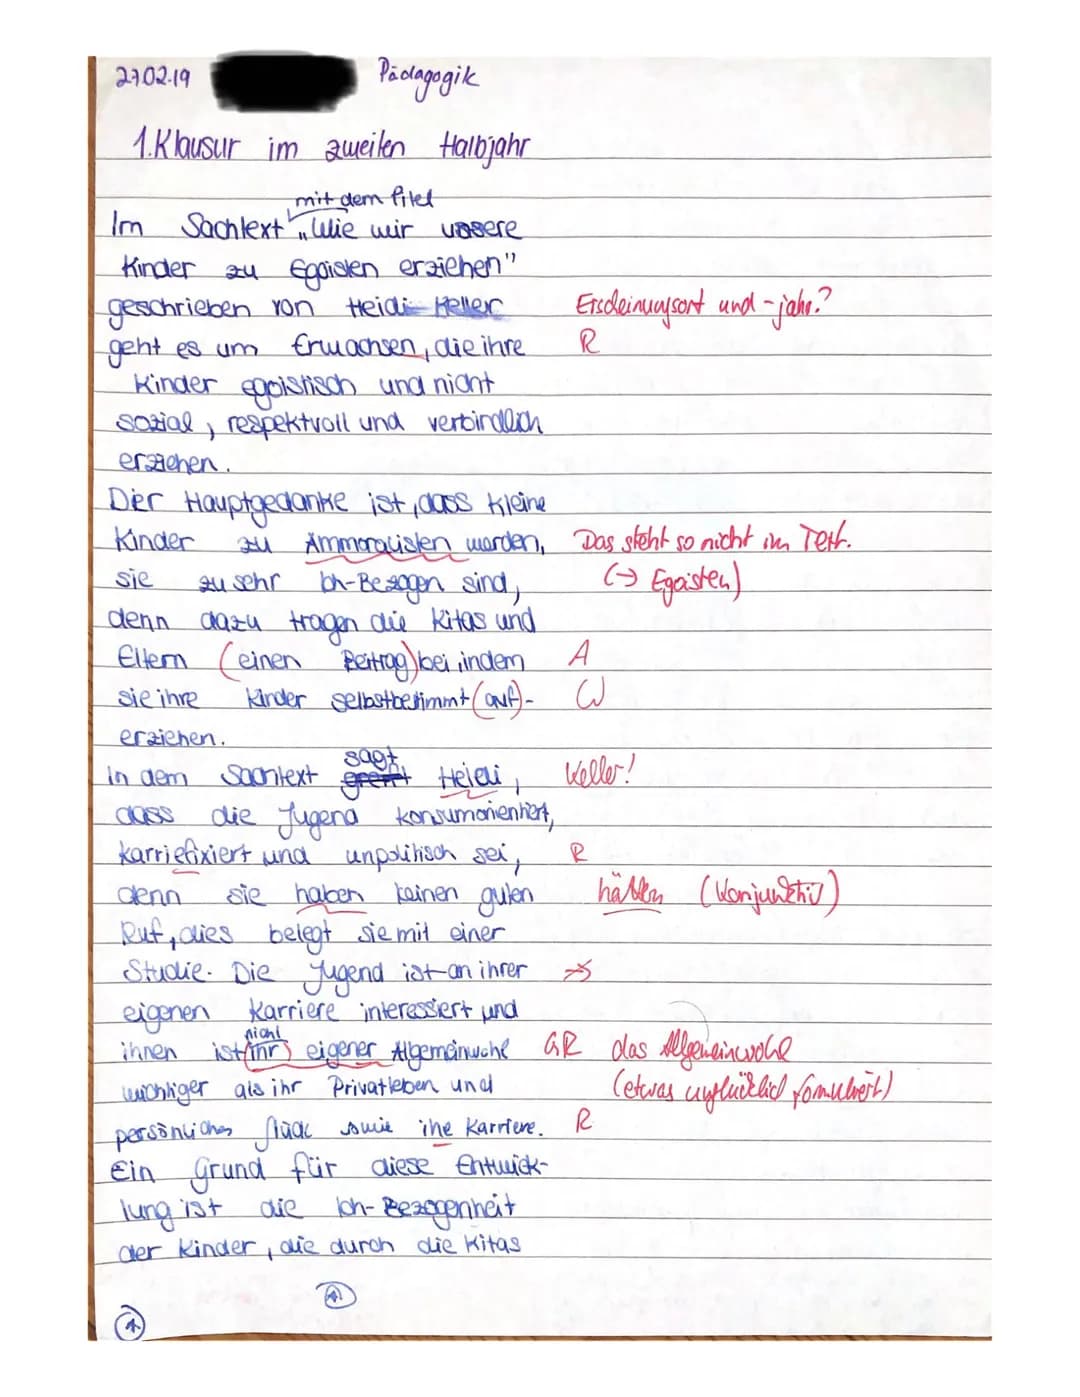 27.02.19 Pädagogik
1.Klausur im zweiten Halbjahr
mit dem Titel
Im Sachtext „Wie wir unsere
Kinder zu Egoisten erziehen"
geschrieben von Heidi Keller Erscheinungsort und -jahr?
geht es um Erwachsen, die ihre R
Kinder egoistisch und nicht
sozial, respektvoll und verbindlich
erziehen.
Der Hauptgedanke ist, dass kleine
Kinder zu Ammoralisten werden, Das steht so nicht im Text.
sie zu sehr Ich-Bezogen sind, (→ Egoisten)
denn dazu tragen die Kitas und
Eltern (einen Beitrag) bei, indem A
sie ihre Kinder selbstbestimmt (auf)- W
erziehen.
In dem Sachtext sagt Heidi, Keller!
dass die Jugend konsumorientiert,
karriefixiert und unpolitisch sei, R
denn sie haben keinen guten hätten (Konjunktiv)
Ruf, dies belegt sie mit einer
Studie. Die Jugend ist an ihrer
eigenen Karriere interessiert und
nicht
ihnen ist (ihr) eigener Allgemeinwohl GR das Allgemeinwohl
wichtiger als ihr Privatleben und (etwas unglücklich formuliert)
persönliches Glück sowie ihe Karriere. R
Ein Grund für diese Entwick-
lung ist die Ich-Bezogenheit
der Kinder, die durch die Kitas
A1